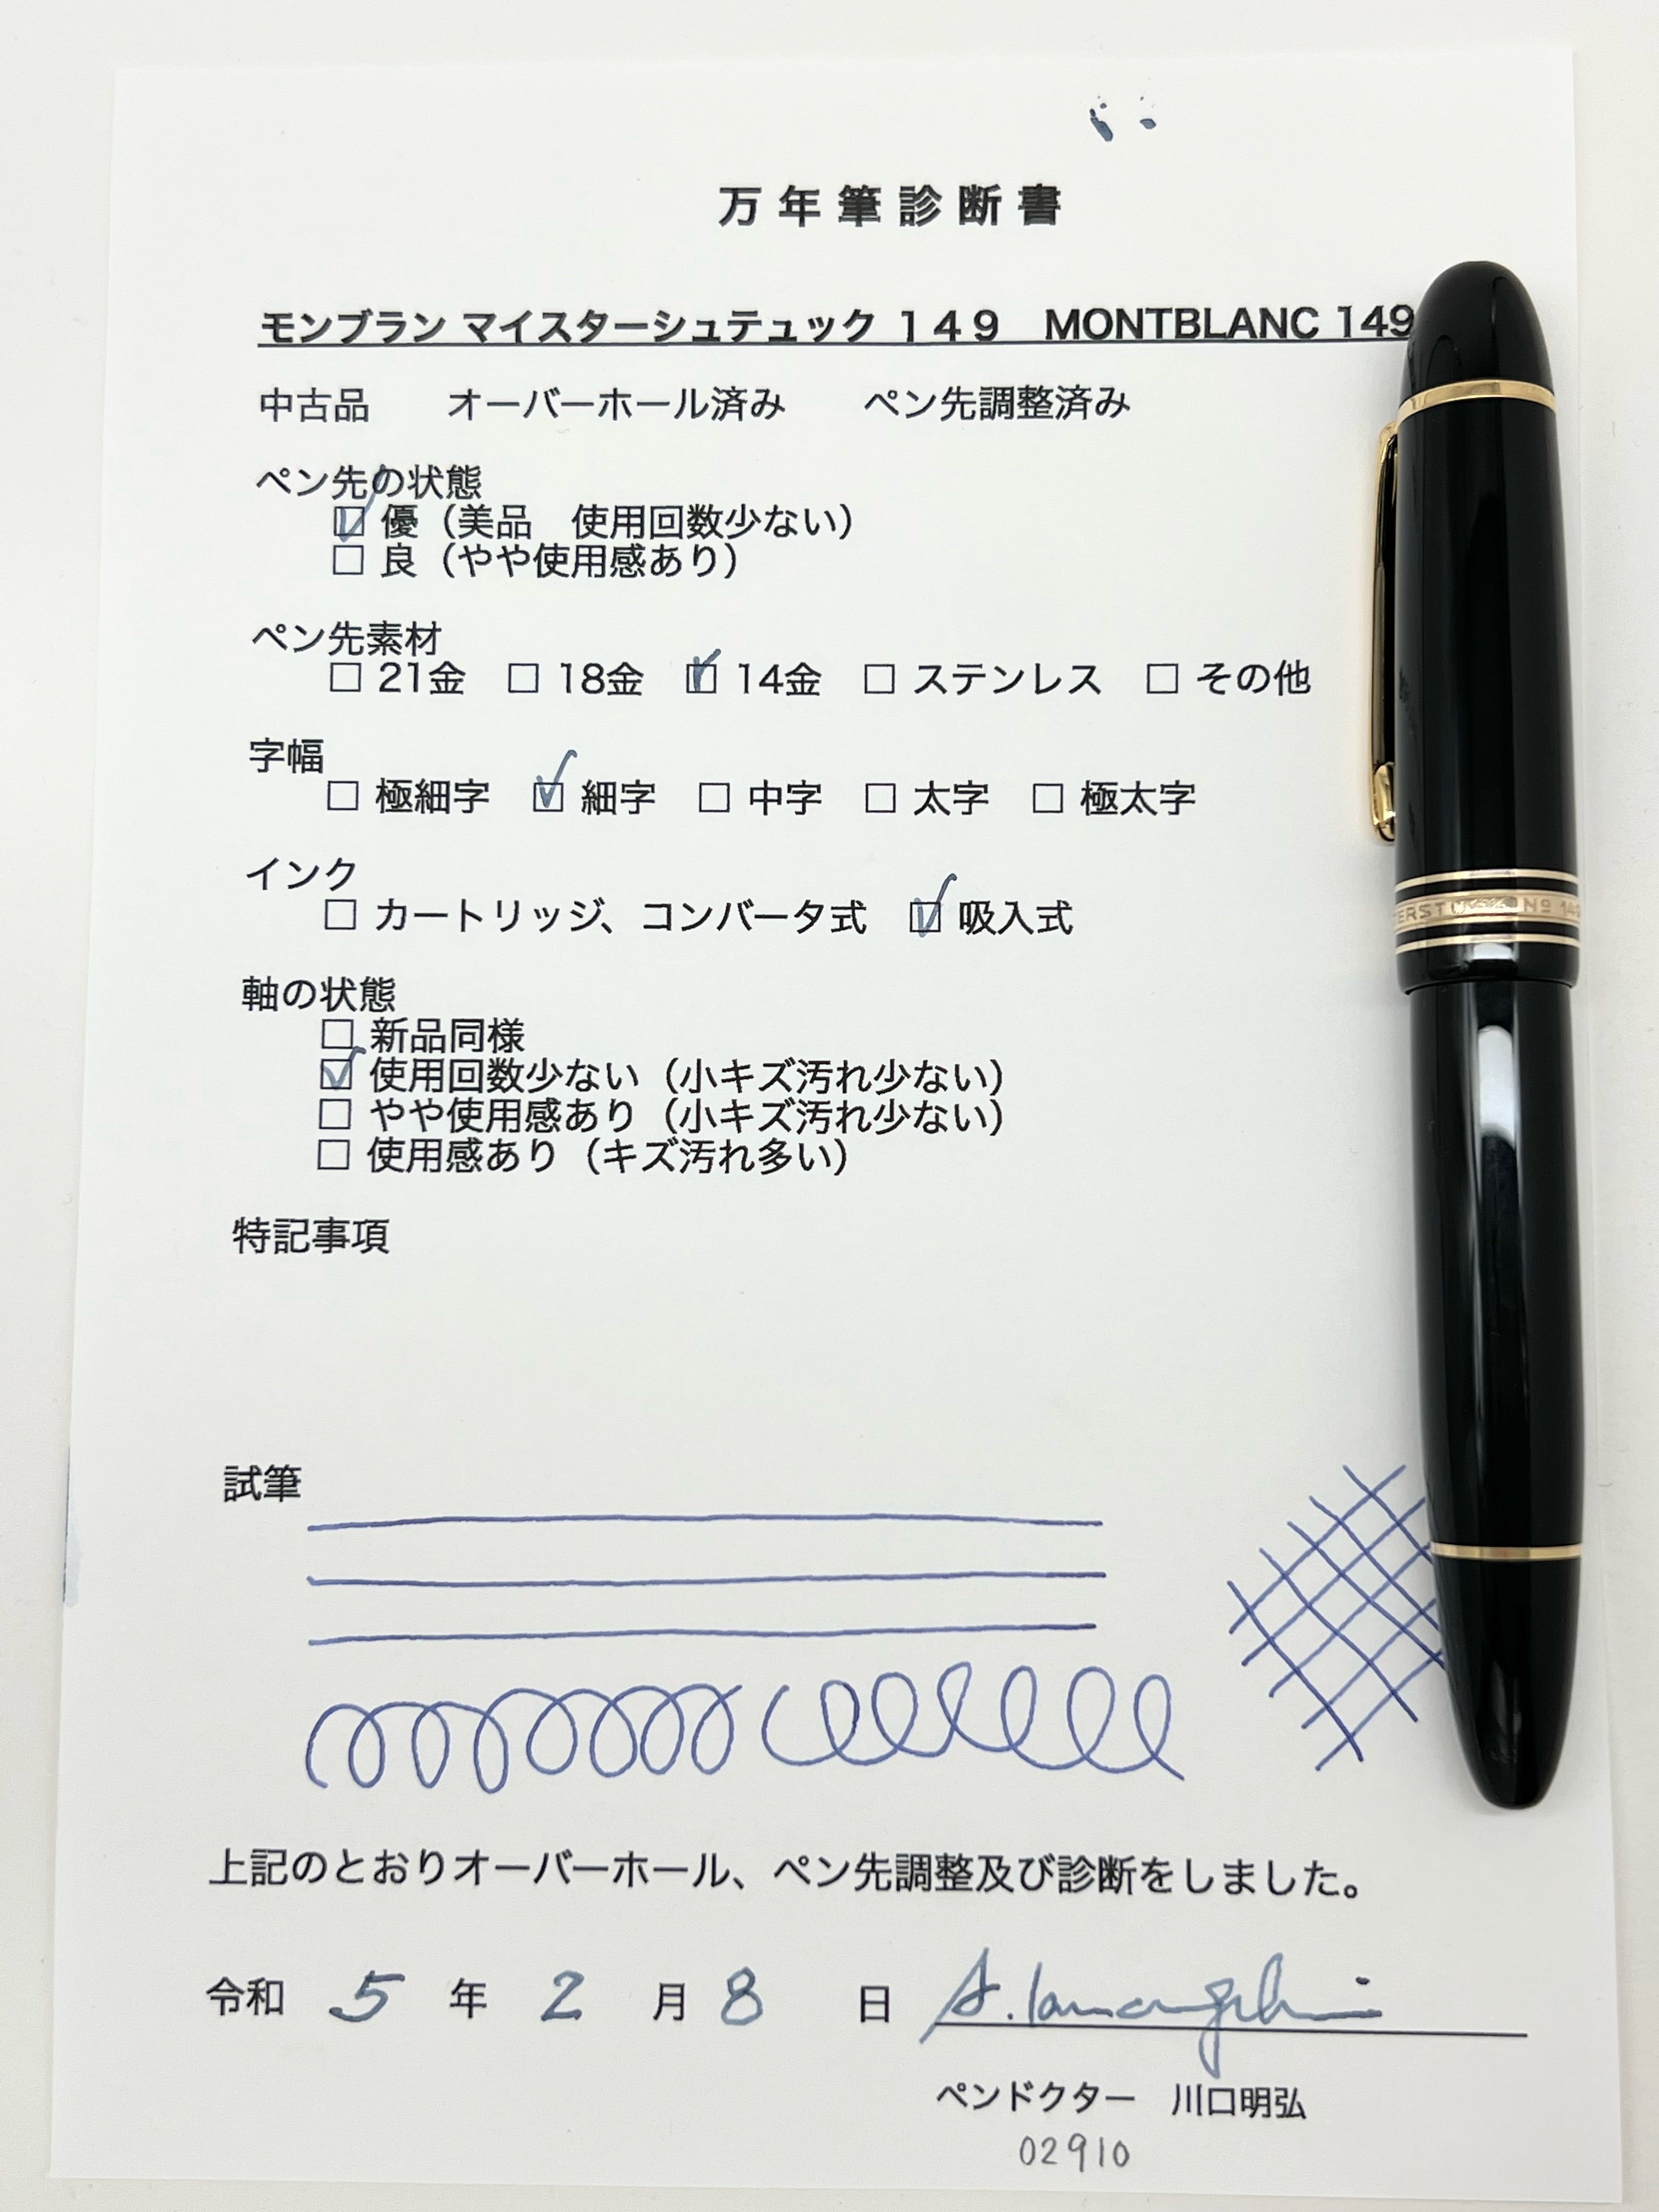 万年筆診断書
モンブラン マイスターシュテュック 149 MONTBLANC 149
中古品 オーバーホール済み ペン先調整済み
ペン先の状態
☑ 優（美品 使用回数少ない）
☐ 良（やや使用感あり）
ペン先素材
☐ 21金 ☐ 18金 ☑ 14金 ☐ ステンレス ☐ その他
字幅
☐ 極細字 ☑ 細字 ☐ 中字 ☐ 太字 ☐ 極太字
インク
☐ カートリッジ、コンバータ式 ☑ 吸入式
軸の状態
☐ 新品同様
☑ 使用回数少ない（小キズ汚れ少ない）
☐ やや使用感あり（小キズ汚れ少ない）
☐ 使用感あり（キズ汚れ多い）
特記事項
試筆
上記のとおりオーバーホール、ペン先調整及び診断をしました。
令和 5 年 2 月 8 日
ペンドクター 川口明弘
02910